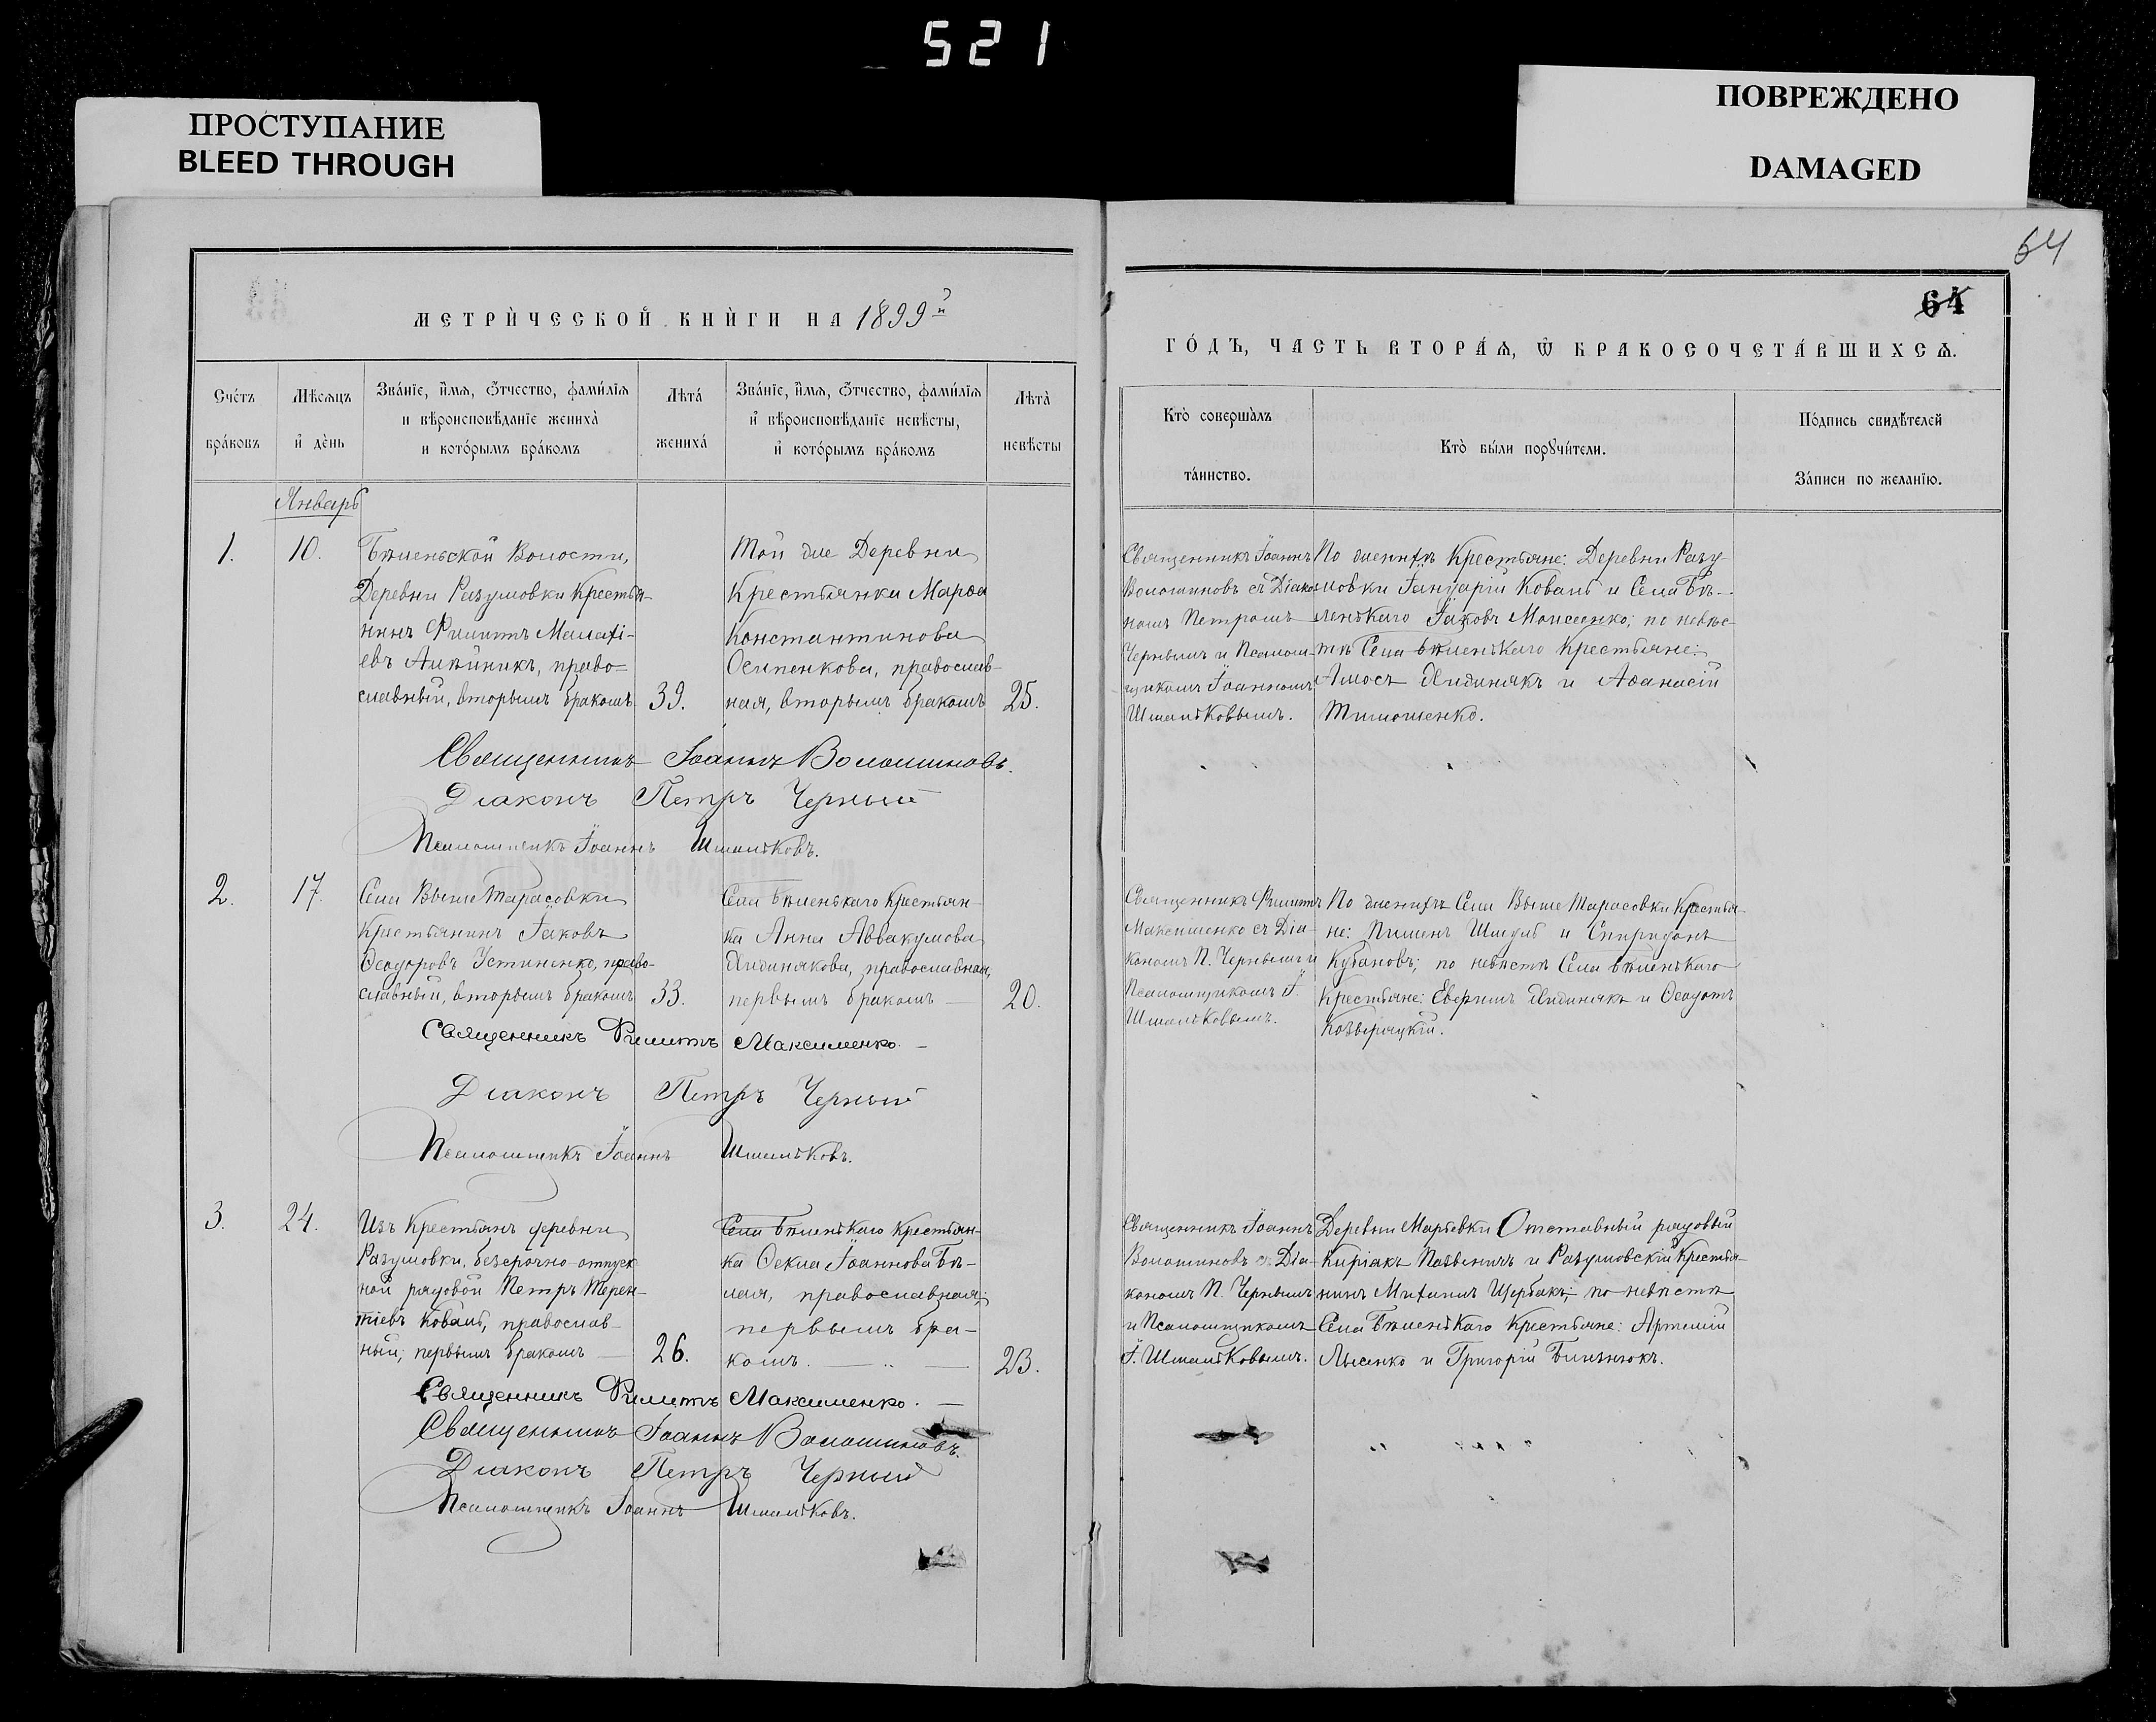 521
ПРОСТУПАНИЕ
BLEED THROUGH
ПОВРЕЖДЕНО
DAMAGED
64
64
МЕТРИ́ЧЕСКОЙ КНИ́ГИ НА 1899 й
ГО́ДЪ, ЧАСТЬ ВТОРА́Ѧ, Ѡ҆ БРАКОСОЧЕТА́ВШИХСѦ.
Сче́тъ бра́ковъ
Мѣ́сѧцъ и҆ де́нь
Зва́нїе, и҆́мѧ, ѻ҆́тчество, фами́лїѧ
и вѣроисповѣ́данїе жениха̀
и кото́рымъ бра́комъ
Лѣта́ жениха́
Зва́нїе, и҆́мѧ, ѻ҆́тчество, фами́лїѧ
и҆ вѣроисповѣ́данїе невѣ́сты,
и҆ кото́рымъ бра́комъ
Лѣта̀ невѣ́сты
Кто̀ соверша́лъ
та́инство.
Кто̀ бы́ли порꙋчи́тели.
По́дпись свидѣ́телей
За́писи по жела́нїю.
Январь
1. 10.
Бѣленьской Волости,
Деревни Разумовки Крестья-
нинъ Филиппъ Малахі-
евъ Алѣйникъ, право-
славный, вторымъ бракомъ 39.
Той же Деревни
Крестьянка Марѳа
Константинова
Осипенкова, православ-
ная, вторымъ бракомъ 25.
Священникъ Іоаннъ
Волошиновъ съ Діако-
номъ Петромъ
Чернымъ и Псалом-
щикомъ Іоанномъ
Шмальковымъ.
По женихѣ Крестьяне: Деревни Разу
мовки Іануарій Коваль и Села Бѣ-
леньkаго Іаковъ Моисеенко; по невѣс-
тѣ Села Бѣленькаго Крестьяне:
Амосъ Жидинякъ и Аѳанасій
Тимошенко.
Священникъ Іоаннъ Волошиновъ.
Діаконъ Петръ Черный
Псаломщикъ Іоаннъ Шмальковъ.
2. 17.
Села Вышетарасовки
Крестьянинъ Іаковъ
Ѳеодоровъ Устименко, право-
славный, вторымъ бракомъ 33.
Села Бѣленькаго Крестьян-
ка Анна Аввакумова
Жидинякова, православная,
первымъ бракомъ — 20.
Священникъ Филиппъ
Максименко съ Діа-
кономъ П. Чернымъ и
Псаломщикомъ І.
Шмальковымъ.
По женихѣ Села Выше Тарасовки Крестья-
не: Пименъ Шмдуль и Спиридонъ
Кубановъ; по невѣстѣ Села Бѣленькаго
Крестьяне: Евфимъ Жидинякъ и Ѳеодотъ
Козырацкій.
Священникъ Филиппъ Максименко. —
Діаконъ Петръ Черный
Псаломщикъ Іоаннъ Шмальковъ.
3. 24.
Изъ Крестьянъ деревни
Разумовки, безсрочно-отпуск
ной рядовой Петръ Терен-
тіевъ Коваль, православ-
ный; первымъ бракомъ — 26.
Села Бѣленькаго Крестьян-
ка Ѳекла Іоаннова Бѣ-
лая, православная;
первымъ бра-
комъ. — 23.
Священникъ Іоаннъ
Волошиновъ съ Діа-
кономъ П. Чернымъ
и Псаломщикомъ
І. Шмальковымъ.
Деревни Марьевки Отставный рядовый
Киріакъ и Разумовскій Крестья-
нинъ Михаилъ Щербакъ; по невѣстѣ
Села Бѣленькаго Крестьяне: Артемій
Лысенко и Григорій Билынюкъ.
Священникъ Филиппъ Максименко. —
Священникъ Іоаннъ Волошиновъ.
Діаконъ Петръ Черный
Псаломщикъ Іоаннъ Шмальковъ.